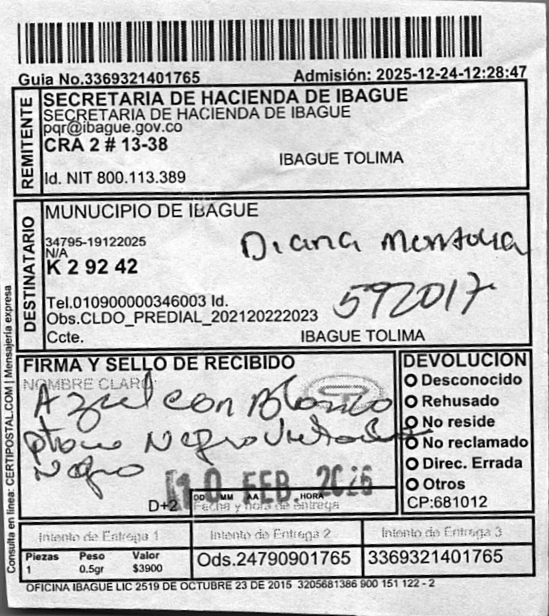 Guia No.3369321401765 Admisión: 2025-12-24-12:28:47
REMITENTE
SECRETARIA DE HACIENDA DE IBAGUE
SECRETARIA DE HACIENDA DE IBAGUE
pqr@ibague.gov.co
CRA 2 # 13-38
IBAGUE TOLIMA
Id. NIT 800.113.389
DESTINATARIO
MUNUCIPIO DE IBAGUE
34795-19122025
N/A
Diana Montoya
K 2 92 42
592017
Tel.010900000346003 Id.
Obs.CLDO_PREDIAL_202120222023
Ccte. IBAGUE TOLIMA
FIRMA Y SELLO DE RECIBIDO
NOMBRE CLARO:
Azul con Blanco
Negro
Negro
10 FEB. 2026
D+2
DD MM AA HORA
Fecha y hora de entrega
DEVOLUCION
Desconocido
Rehusado
No reside
No reclamado
Direc. Errada
Otros
CP:681012
Intento de Entrega 1 Intento de Entrega 2 Intento de Entrega 3
Piezas Peso Valor
1 0.5gr $3900
Ods.24790901765 3369321401765
OFICINA IBAGUE LIC 2519 DE OCTUBRE 23 DE 2015 3205681386 900 151 122 - 2
Consulta en línea: CERTIPOSTAL.COM | Mensajería expresa